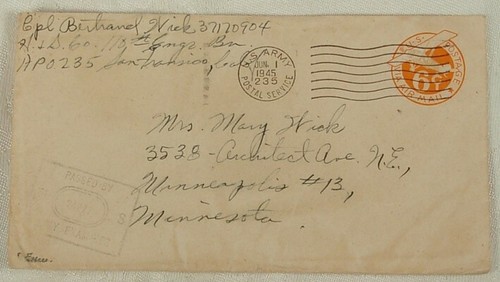 Cpl Bertrand Wick 37170904
H.&S. Co. Engr. Bn.
APO 235 San Francisco, Cal
U.S. ARMY
JUN 1
1945
235
POSTAL SERVICE
U.S. POSTAGE
6¢
AIR MAIL
Mrs. Mary Wick
3538 - Architect Ave. N.E.,
Minneapolis #13,
Minnesota.
PASSED BY
S